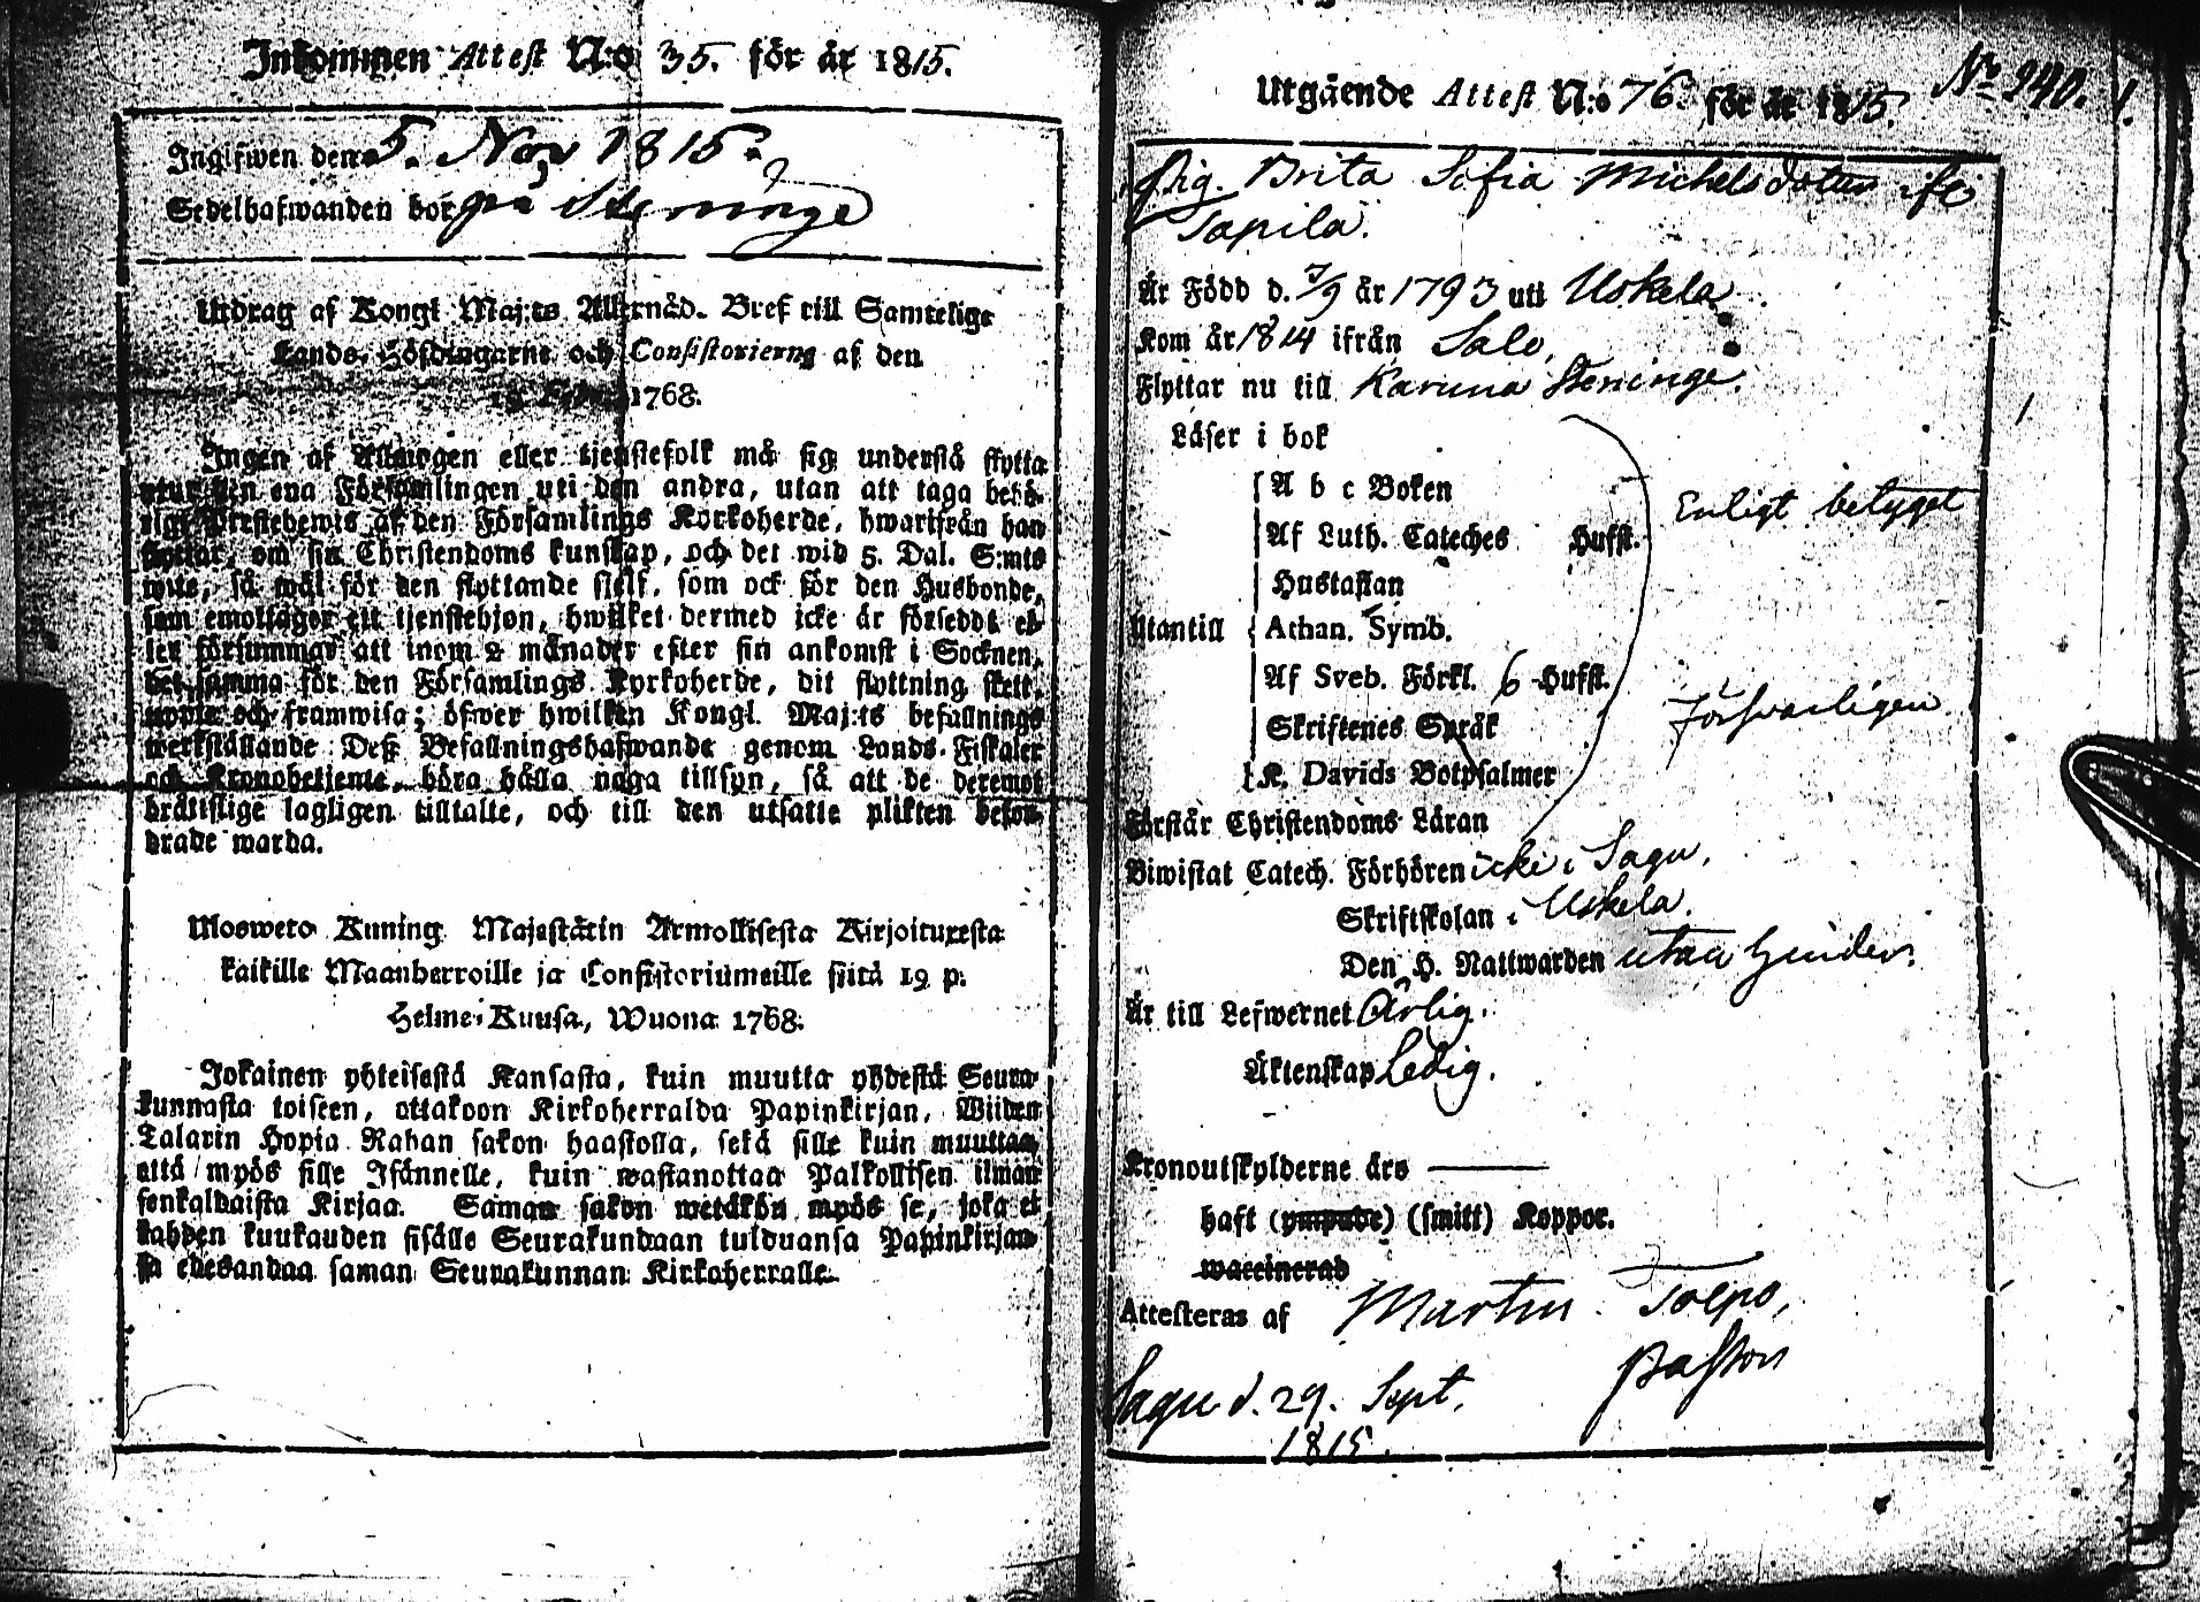 Inkommen Attest N:o 35. för år 1815.
Ingifwen den 5. Nov 1815.
Sedelhafwanden bor på Steninge
Utdrag af Kongl Maj:ts Allernåd. Bref till Samtelige
Lands-Höfdingarne och Consistorierna af den
19 1768.
Ingen af Allmogen eller tjenstefolk må sig understå flytta
utur den ena Församlingen uti den andra, utan att taga behö-
rigt Prestebewis af den Församlings Kyrkoherde, hwarifrån han
flyttar, om sin Christendoms kunskap, och det wid 5. Dal. S:mts
wite, så wäl för den flyttande sjelf, som ock för den Husbonde,
som emottager ett tjenstehjon, hwilket dermed icke är förseddt el-
ler försummar att inom 2 månader efter sin ankomst i Socknen,
det samma för den Församlings Kyrkoherde, dit flyttning skett,
uppte och framwisa; öfwer hwilken Kongl. Maj:ts befallnings
werkställande Deß Befallningshafwande genom Lands-Fiskaler
och Kronobetjente, böra hålla noga tillsyn, så att de deremot
bråttslige lagligen tilltalte, och till den utsatte plikten befor-
drade warda.
Ulosweto Kuning. Majestätin Armollisesta Kirjoituxesta
kaikille Maanherroille ja Consistoriumeille siitä 19 p.
Helme-Kuusa, Wuona 1768.
Jokainen yhteisestä Kansasta, kuin muutta yhdestä Seura-
kunnasta toiseen, ottakoon Kirkoherralda Papinkirjan, Wiiden
Talarin Hopia Rahan sakon haastolla, sekä sille kuin muuttaa,
että myös sille Isännelle, kuin wastanottaa Palkollisen ilman
senkaldaista Kirjaa. Saman sakon wetäkön myös se, joka ei
kahden kuukauden sisälle Seurakundaan tulduansa Papinkirjaan-
sa edesandaa saman Seurakunnan Kirkoherralle.
Utgående Attest N:o 76. för år 1815. No 240.
Pig. Brita Sofia Michelsdotter ifr
Tapila.
Är Född d. 7/9 år 1793 uti Uskela
Kom år 1814 ifrån Salo,
Flyttar nu till Karuna Steninge.
Läser i bok
A b c Boken
Enligt betyget
Af Luth. Cateches Hufst.
Hustaflan
Utantill Athan. Symb.
Af Sveb. Förkl. 6 Hufst.
Försvarligen
Skriftenes Språk
K. Davids Botpsalmer
Förstår Christendoms Läran
Biwistat Catech. Förhören icke i Sagu,
Skriftskolan i Uskela.
Den H. Nattwarden utan hinder.
Är till Lefwernet Ärlig.
Äktenskap Ledig.
Kronoutskylderne äro
haft (ympade) (smitt) Koppor.
waccinerad
Attesteras af Martin Tolpo,
Pastor
Sagu d. 29. Sept.
1815.